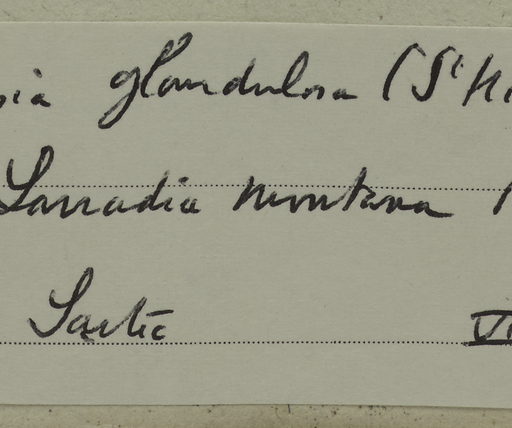 sia glandulosa (St Hi
Larradia montana
Sartc
VI